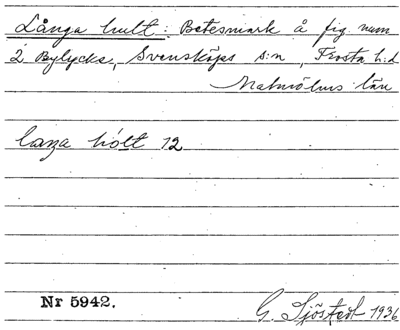 Långa hult: Betesmark å fig. num
2 Bylycke, Svensköps s:n, Frosta h:d
Malmöhus län
långa hólt 12
Nr 5942.
G. Sjöstedt 1936